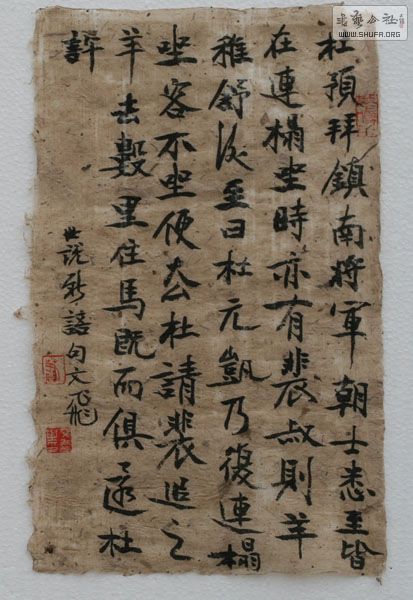 杜預拜鎮南將軍朝士悉至皆
在連榻坐時亦有裴叔則羊
稚舒後至曰杜元凱乃復連榻
坐客不坐便去杜請裴追之
羊去數里住馬既而俱還杜
許
世說新語句文飛
WWW.SHUFA.ORG